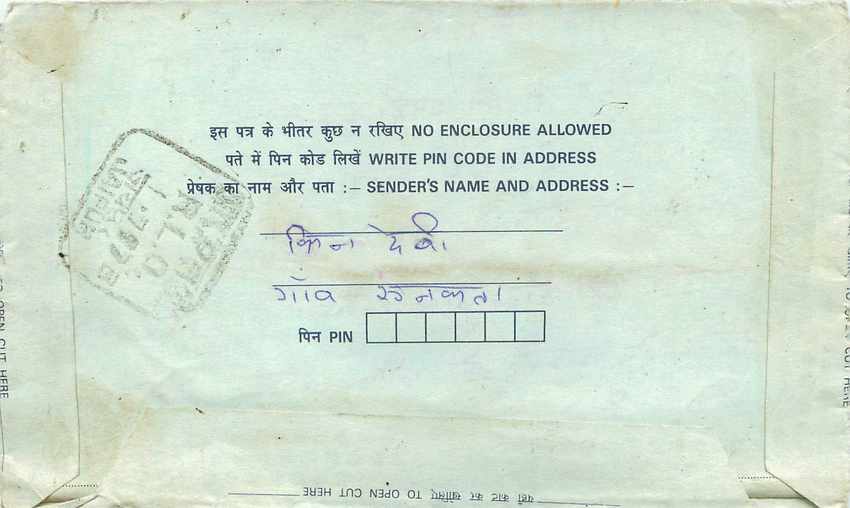 इस पत्र के भीतर कुछ न रखिए NO ENCLOSURE ALLOWED
पते में पिन कोड लिखें WRITE PIN CODE IN ADDRESS
प्रेषक का नाम और पता :– SENDER'S NAME AND ADDRESS :–
किन देवी
गाँव रुनकता
पिन PIN
R.L.O.
JAIPUR
TO OPEN CUT HERE
यहाँ काट कर खोलिए TO OPEN CUT HERE